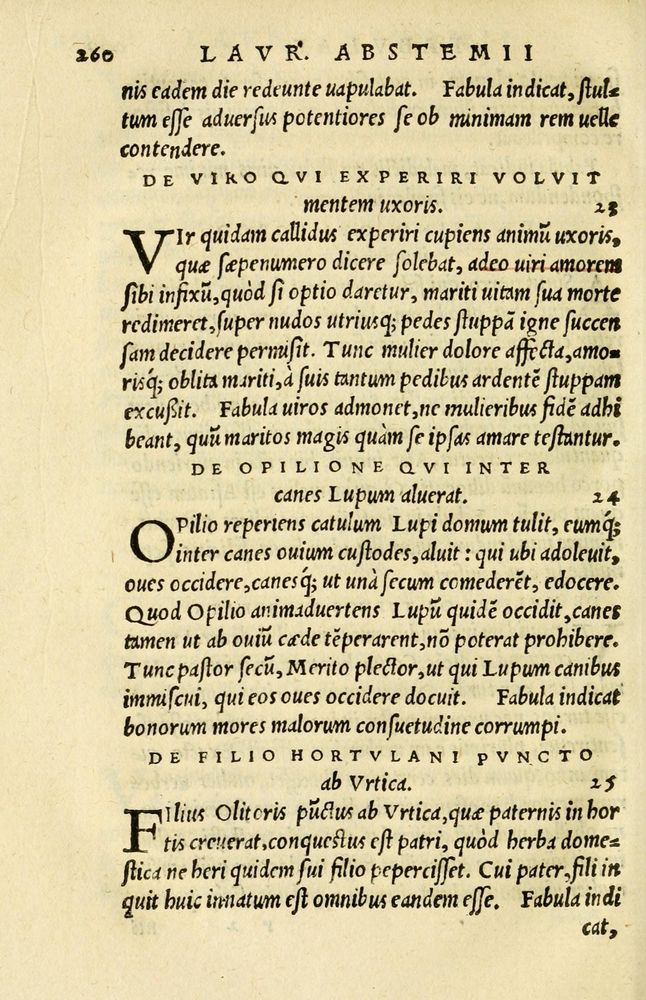 260 LAVR. ABSTEMII
nis eadem die redeunte uapulabat. Fabula indicat, ſtul-
tum eſſe aduerſus potentiores ſe ob minimam rem uelle
contendere.
DE VIRO QVI EXPERIRI VOLVIT
mentem uxoris. 23
VIr quidam callidus experiri cupiens animū uxoris,
quæ ſæpenumero dicere ſolebat, adeo uiri amorem
ſibi infixū, quòd ſi optio daretur, mariti uitam ſua morte
redimeret, ſuper nudos utriusq; pedes ſtuppā igne ſuccen
ſam decidere permiſit. Tunc mulier dolore affecta, amo-
risq́; oblita mariti, à ſuis tantum pedibus ardentē ſtuppam
excußit. Fabula uiros admonet, ne mulieribus fidē adhi
beant, quū maritos magis quàm ſe ipſas amare teſtantur.
DE OPILIONE QVI INTER
canes Lupum aluerat. 24
OPilio reperiens catulum Lupi domum tulit, eumq́;
inter canes ouium cuſtodes, aluit : qui ubi adoleuit,
oues occidere, canesq́; ut unà ſecum comederēt, edocere.
Quod Opilio animaduertens Lupū quidē occidit, canes
tamen ut ab ouiū cæde tēperarent, nō poterat prohibere.
Tunc paſtor ſecū, Merito plector, ut qui Lupum canibus
immiſcui, qui eos oues occidere docuit. Fabula indicat
bonorum mores malorum conſuetudine corrumpi.
DE FILIO HORTVLANI PVNCTO
ab Vrtica. 25
FIlius Olitoris pūctus ab Vrtica, quæ paternis in hor
tis creuerat, conqueſtus eſt patri, quòd herba dome-
ſtica ne heri quidem ſui filio peperciſſet. Cui pater, fili in
quit huic innatum eſt omnibus eandem eſſe. Fabula indi
cat,